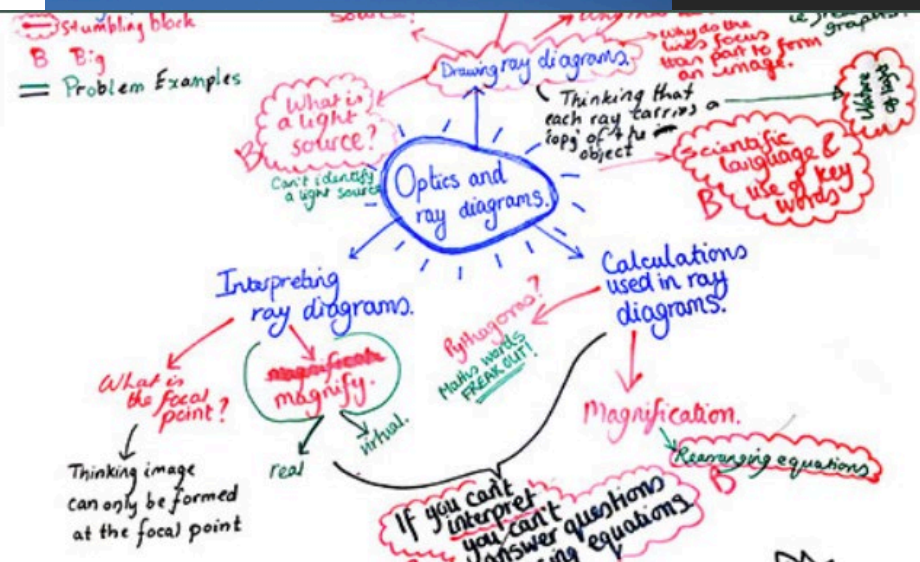 stumbling block
B Big
= Problem Examples
source?
Drawing ray diagrams.
why do the
lines focus
to form
an image.
What is
a light
source?
B
Can't identify
a light source
Thinking that
each ray carries a
'copy' of the
object
Nature
of light
Scientific
language &
use of key
words
B
Optics and
ray diagrams.
Interpreting
ray diagrams.
Calculations
used in ray
diagrams.
Pythagoras?
Maths words
FREAK OUT!
What is
the focal
point?
magnify.
real
virtual.
Thinking image
can only be formed
at the focal point
Magnification.
Rearranging equations
B
If you can't
interpret
you can't
answer questions
using equations